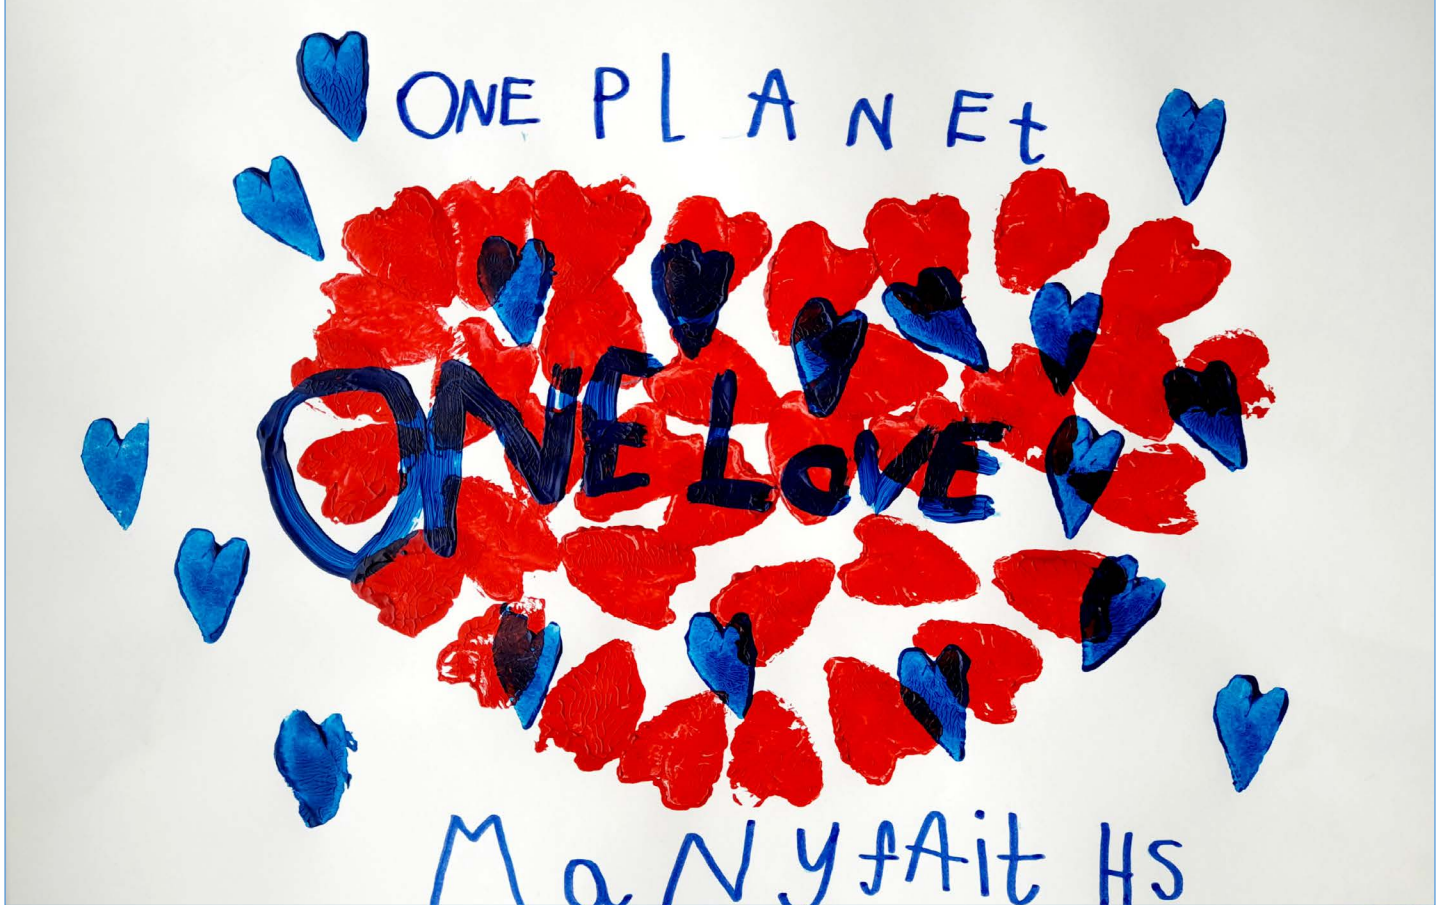 ONE PlANEt
ONE LOVE
MaNyfAitHS